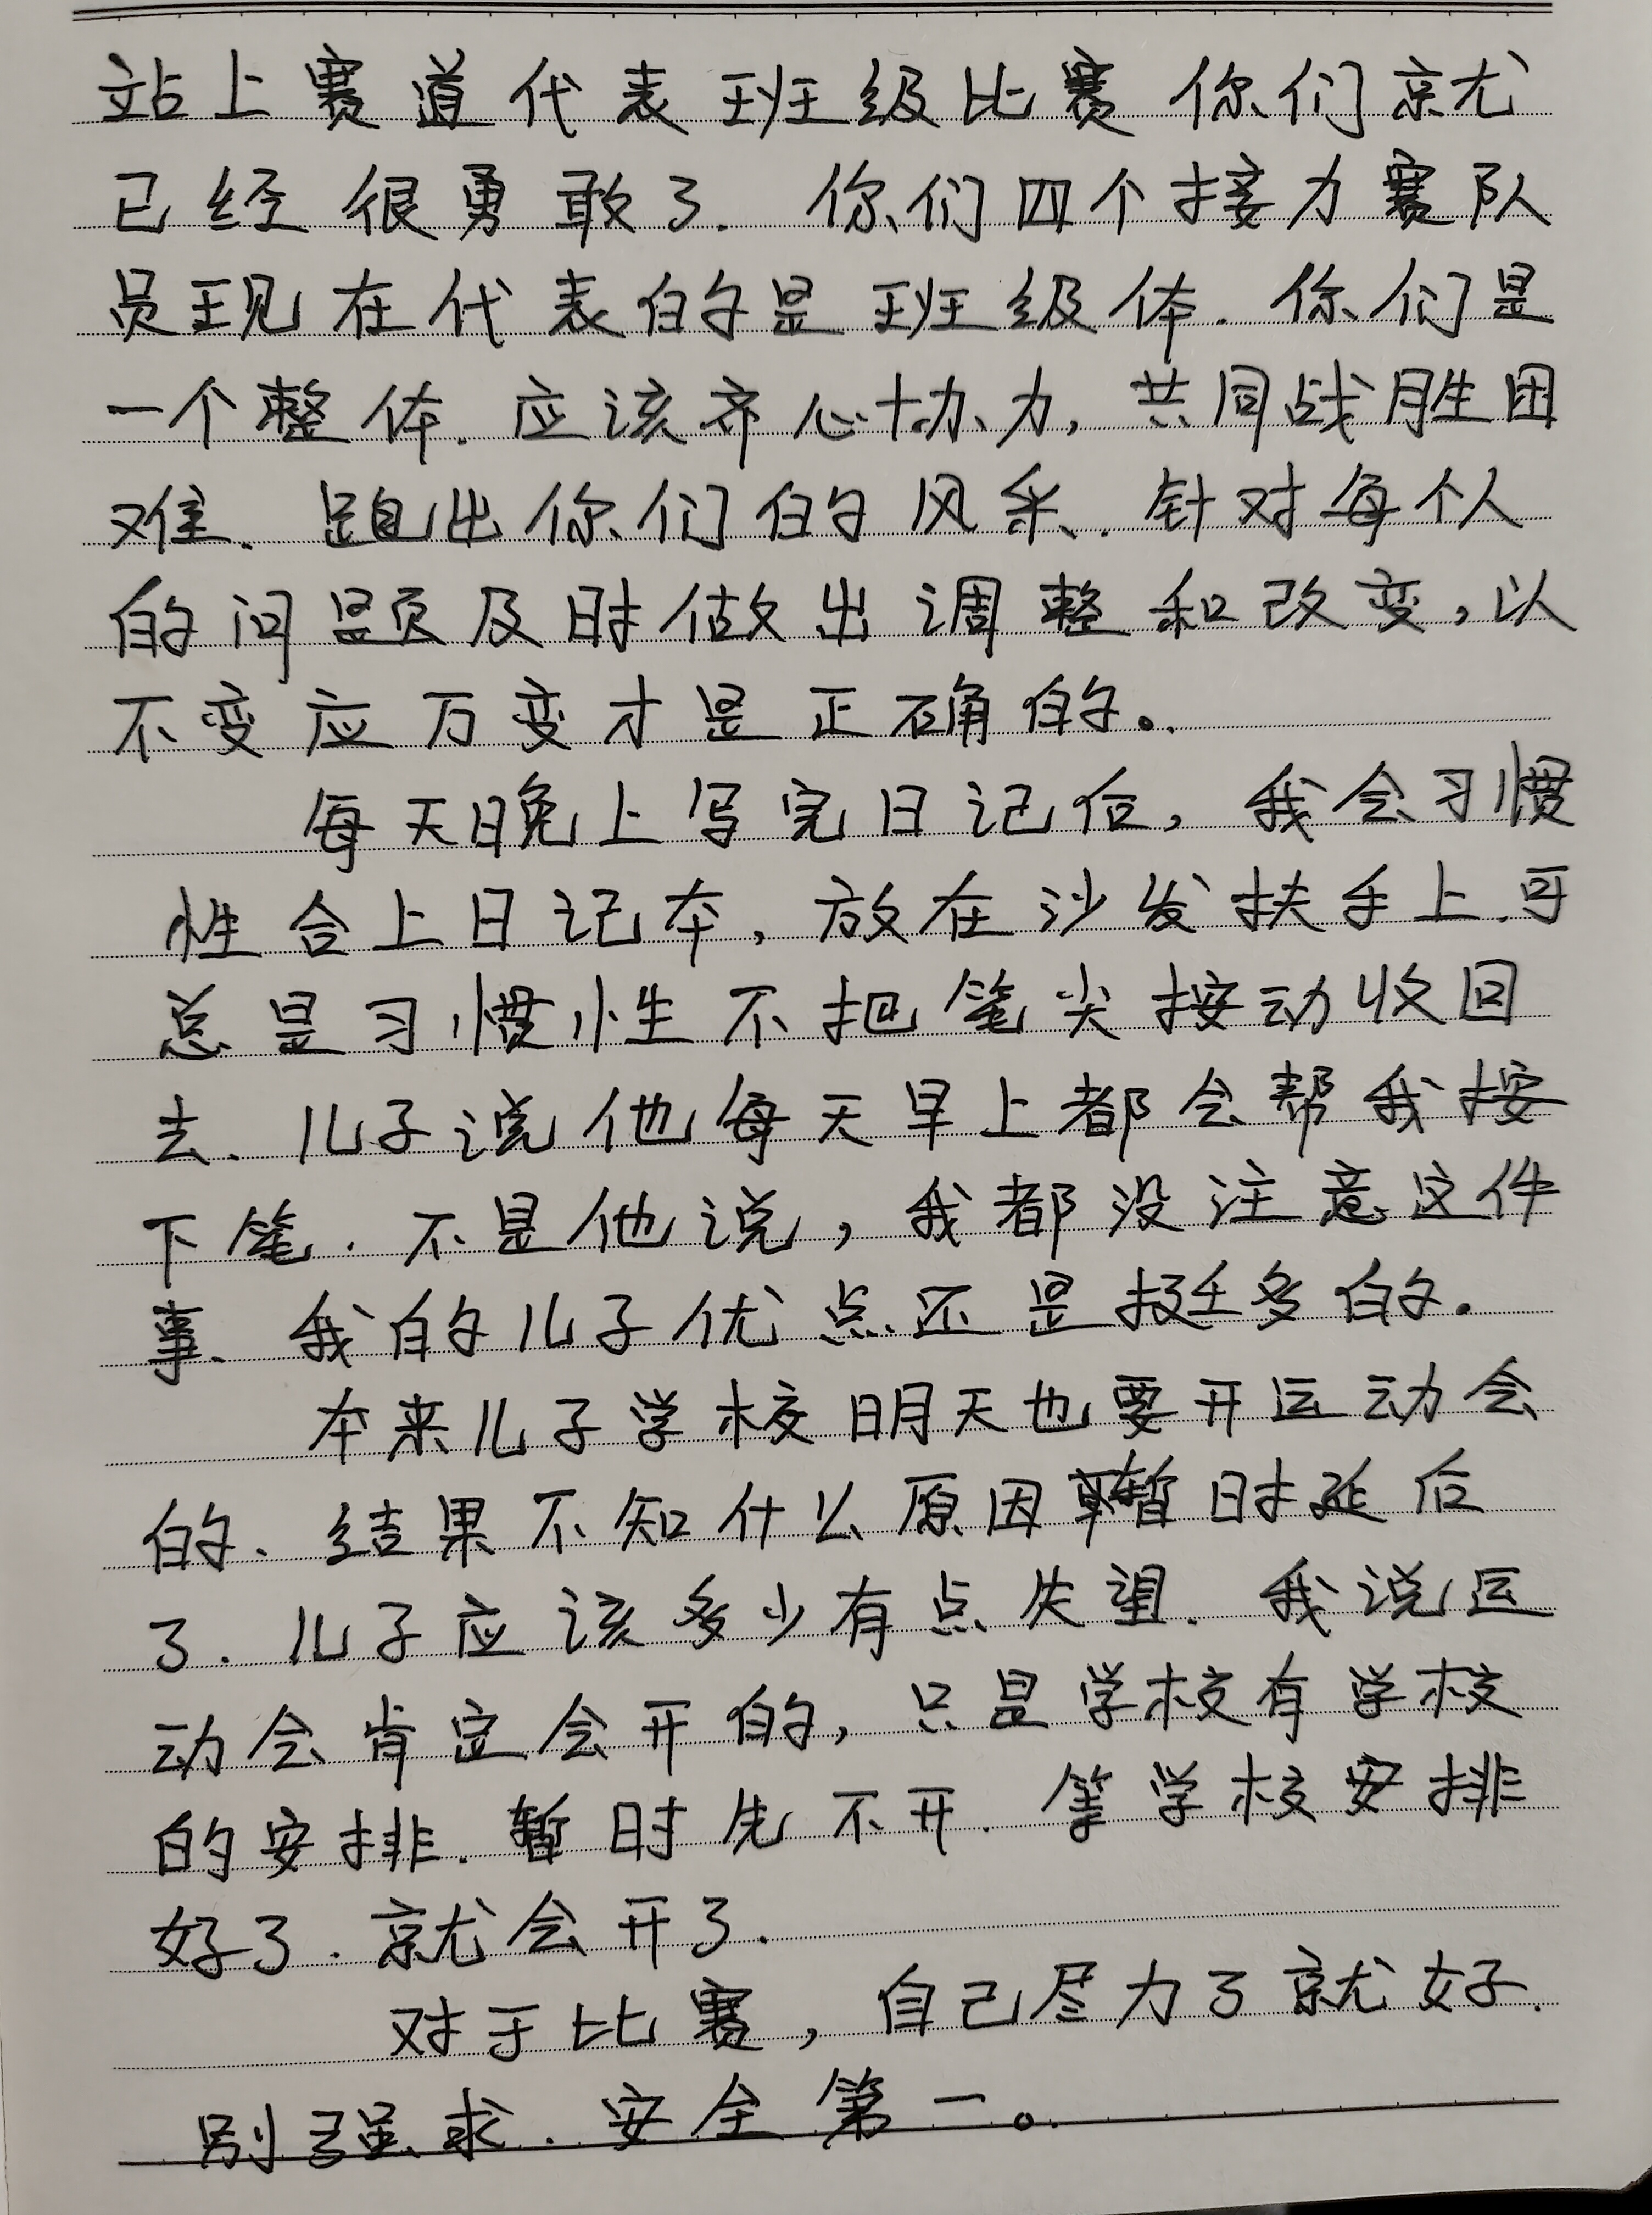 站上赛道代表班级比赛你们就
已经很勇敢了.你们四个接力赛队
员现在代表的是班级体.你们是
一个整体.应该齐心协力,共同战胜困
难.跑出你们的风采.针对每个人
的问题及时做出调整和改变,以
不变应万变才是正确的。
每天晚上写完日记后,我会习惯
性合上日记本,放在沙发扶手上.可
总是习惯性不把笔尖按动收回
去.儿子说他每天早上都会帮我按
下笔.不是他说,我都没注意这件
事.我的儿子优点还是挺多的.
本来儿子学校明天也要开运动会
的、结果不知什么原因暂时延后
了.儿子应该多少有点失望.我说运
动会肯定会开的,只是学校有学校
的安排.暂时先不开.等学校安排
好了.就会开了.
对于比赛,自己尽力了就好.
别强求.安全第一。